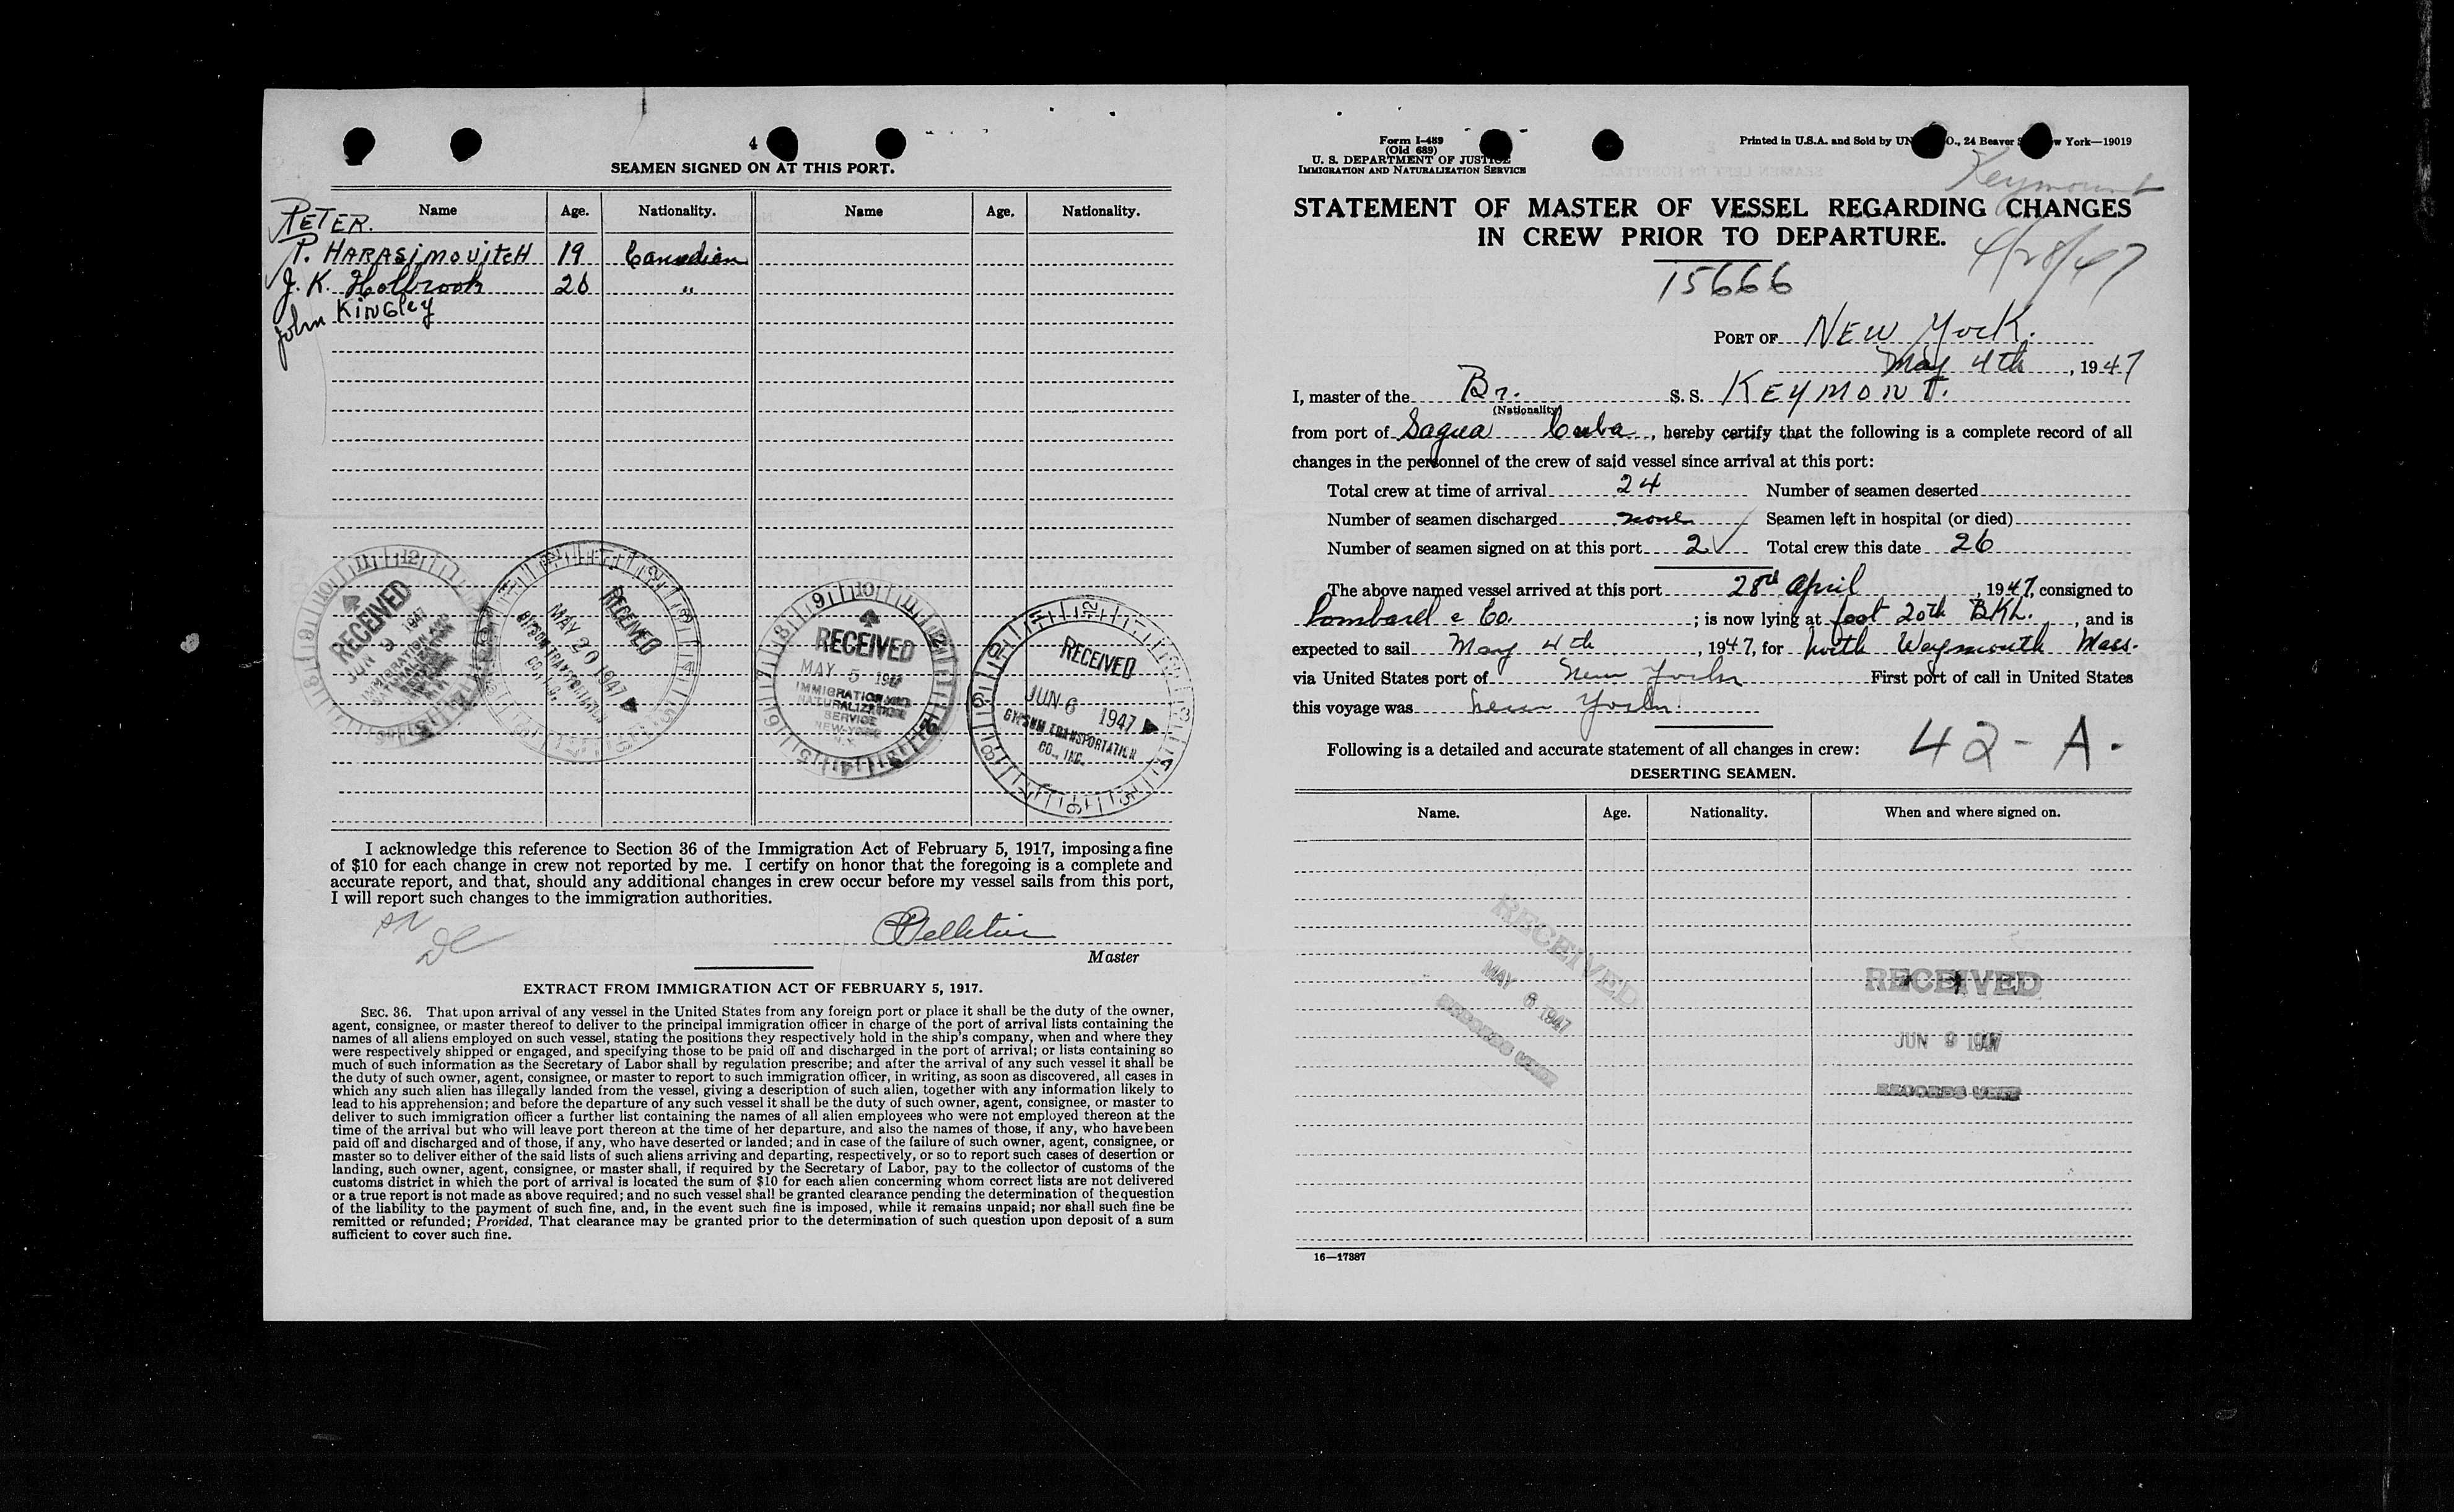 4
SEAMEN SIGNED ON AT THIS PORT.
Name Age. Nationality. Name Age. Nationality.
PETER.
P. HARASIMOVITCH 19 Canadian
J. K. Holbrook 26 "
John Kingley
RECEIVED
JUN 9 1947
IMMIGRATION AND
NATURALIZATION
SERVICE
RECEIVED
MAY 20 1947
GYPSUM TRANSPORTATION
CO., INC.
RECEIVED
MAY 5 1947
IMMIGRATION AND
NATURALIZATION
SERVICE
NEW YORK
N.Y.
RECEIVED
JUN 6 1947
GYPSUM TRANSPORTATION
CO., INC.
I acknowledge this reference to Section 36 of the Immigration Act of February 5, 1917, imposing a fine
of $10 for each change in crew not reported by me. I certify on honor that the foregoing is a complete and
accurate report, and that, should any additional changes in crew occur before my vessel sails from this port,
I will report such changes to the immigration authorities.
Pelletier
Master
EXTRACT FROM IMMIGRATION ACT OF FEBRUARY 5, 1917.
SEC. 36. That upon arrival of any vessel in the United States from any foreign port or place it shall be the duty of the owner,
agent, consignee, or master thereof to deliver to the principal immigration officer in charge of the port of arrival lists containing the
names of all aliens employed on such vessel, stating the positions they respectively hold in the ship's company, when and where they
were respectively shipped or engaged, and specifying those to be paid off and discharged in the port of arrival; or lists containing so
much of such information as the Secretary of Labor shall by regulation prescribe; and after the arrival of any such vessel it shall be
the duty of such owner, agent, consignee, or master to report to such immigration officer, in writing, as soon as discovered, all cases in
which any such alien has illegally landed from the vessel, giving a description of such alien, together with any information likely to
lead to his apprehension; and before the departure of any such vessel it shall be the duty of such owner, agent, consignee, or master to
deliver to such immigration officer a further list containing the names of all alien employees who were not employed thereon at the
time of the arrival but who will leave port thereon at the time of her departure, and also the names of those, if any, who have been
paid off and discharged and of those, if any, who have deserted or landed; and in case of the failure of such owner, agent, consignee, or
master so to deliver either of the said lists of such aliens arriving and departing, respectively, or so to report such cases of desertion or
landing, such owner, agent, consignee, or master shall, if required by the Secretary of Labor, pay to the collector of customs of the
customs district in which the port of arrival is located the sum of $10 for each alien concerning whom correct lists are not delivered
or a true report is not made as above required; and no such vessel shall be granted clearance pending the determination of the question
of the liability to the payment of such fine, and, in the event such fine is imposed, while it remains unpaid; nor shall such fine be
remitted or refunded; Provided, That clearance may be granted prior to the determination of such question upon deposit of a sum
sufficient to cover such fine.
Form I-489
(Old 689)
U. S. DEPARTMENT OF JUSTICE
IMMIGRATION AND NATURALIZATION SERVICE
Printed in U.S.A. and Sold by UN O., 24 Beaver S w York—19019
Keymount
STATEMENT OF MASTER OF VESSEL REGARDING CHANGES
IN CREW PRIOR TO DEPARTURE.
4/28/47
15666
PORT OF NEW York.
May 4th, 1947
I, master of the Br. S. S. KEYMONT.
(Nationality)
from port of Sagua Cuba, hereby certify that the following is a complete record of all
changes in the personnel of the crew of said vessel since arrival at this port:
Total crew at time of arrival 24 Number of seamen deserted
Number of seamen discharged none Seamen left in hospital (or died)
Number of seamen signed on at this port 2 Total crew this date 26
The above named vessel arrived at this port 28rd April, 1947, consigned to
Lombard & Co.; is now lying at foot 20th BKL., and is
expected to sail May 4th, 1947, for North Weymouth Mass.
via United States port of New York First port of call in United States
this voyage was New York.
Following is a detailed and accurate statement of all changes in crew: 42-A.
DESERTING SEAMEN.
Name. Age. Nationality. When and where signed on.
RECEIVED
MAY 6 1947
RECORDS UNIT
RECEIVED
JUN 9 1947
RECORDS UNIT
16—17387